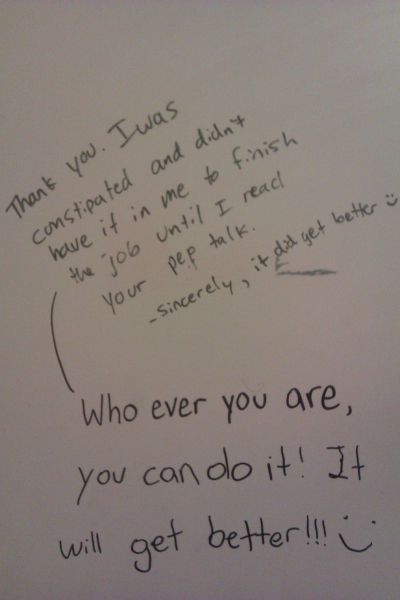 Thank you. I was
constipated and didn't
have it in me to finish
the job until I read
your pep talk.
-sincerely, it did get better :)
Who ever you are,
you can do it! It
will get better!!! :)